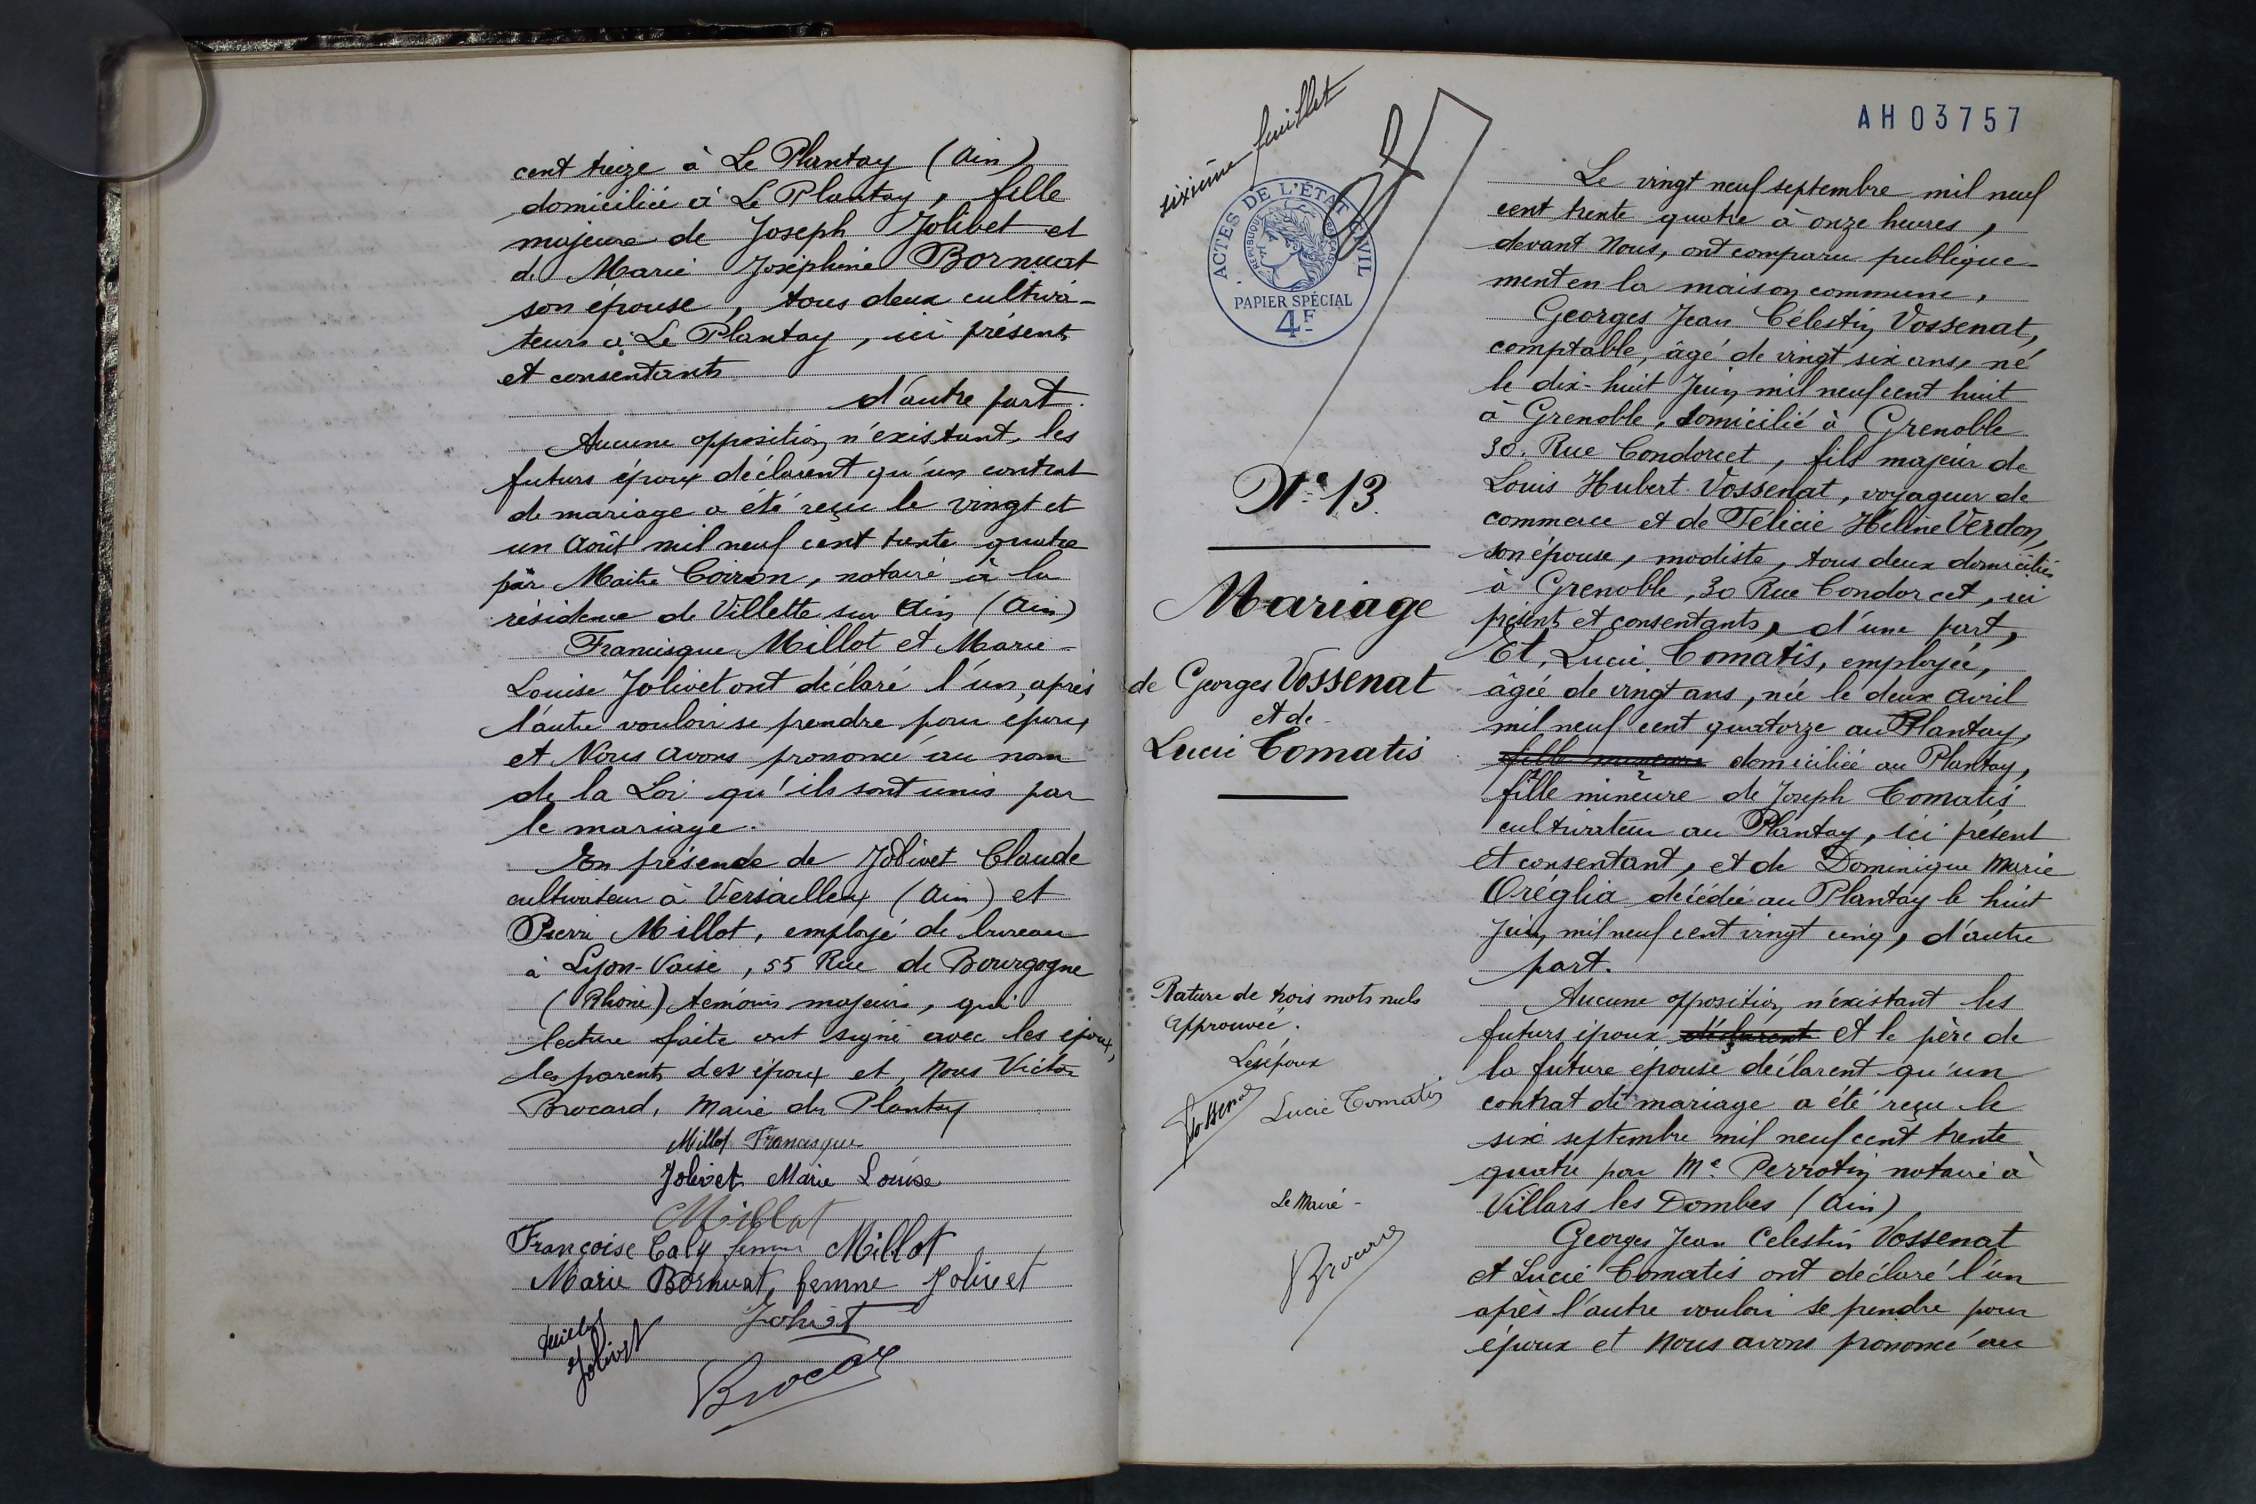 cent treize à Le Plantay (Ain)
domiciliée à Le Plantay, fille
majeure de Joseph Jolivet et
de Marie Joséphine Bornuat
son épouse, tous deux cultiva-
teurs à Le Plantay, ici présents
et consentants
d'autre part.
Aucune opposition n'existant, les
futurs époux déclarent qu'un contrat
de mariage a été reçu le vingt et
un Août mil neuf cent trente quatre
par Maitre Coiron, notaire à la
résidence de Villette sur Ain (Ain)
Francisque Millot et Marie-
Louise Jolivet ont déclaré l'un après
l'autre vouloir se prendre pour époux
et Nous avons prononcé au nom
de la Loi qu'ils sont unis par
le mariage.
En présence de Jolivet Claude
cultivateur à Versailleux (Ain) et
Pierre Millot, employé de bureau
à Lyon-Vaise, 55 Rue de Bourgogne
(Rhône) témoins majeurs, qui
lecture faite ont signé avec les époux,
les parents des époux et, Nous Victor
Brocard, Maire du Plantay
Millot Francisque
Jolivet Marie Louise
Millot
Françoise Caly femme Millot
Marie Bornuat, femme Jolivet
Jolivet
Millot
Jolivet
Brocard
sixième feuillet
ACTES DE L'ÉTAT CIVIL
RÉPUBLIQUE FRANÇAISE
PAPIER SPÉCIAL
4F
N° 13.
Mariage
de Georges Vossenat
et de
Lucie Comatis
Rature de trois mots nuls
approuvée.
Les époux
Vossenat
Lucie Comatis
Le Maire
Brocard
AH03757
Le vingt neuf septembre mil neuf
cent trente quatre à onze heures,
devant Nous, ont comparu publique-
ment en la maison commune,
Georges Jean Célestin Vossenat,
comptable, âgé de vingt six ans, né
le dix-huit Juin mil neuf cent huit
à Grenoble, domicilié à Grenoble
30. Rue Condorcet, fils majeur de
Louis Hubert Vossenat, voyageur de
commerce et de Félicie Hélène Verdon,
son épouse, modiste, tous deux domiciliés
à Grenoble, 30 Rue Condorcet, ici
présents et consentants, d'une part,
Et, Lucie Comatis, employée,
âgée de vingt ans, née le deux Avril
mil neuf cent quatorze au Plantay,
fille mineure domiciliée au Plantay,
fille mineure de Joseph Comatis
cultivateur au Plantay, ici présent
et consentant, et de Dominique Marie
Oréglia décédée au Plantay le huit
Juin mil neuf cent vingt cinq, d'autre
part.
Aucune opposition n'existant les
futurs époux déclarent et le père de
la future épouse déclarent qu'un
contrat de mariage a été reçu le
six septembre mil neuf cent trente
quatre par Me Perrotin notaire à
Villars les Dombes (Ain)
Georges Jean Celestin Vossenat
et Lucie Comatis ont déclaré l'un
après l'autre vouloir se prendre pour
époux et Nous avons prononcé au